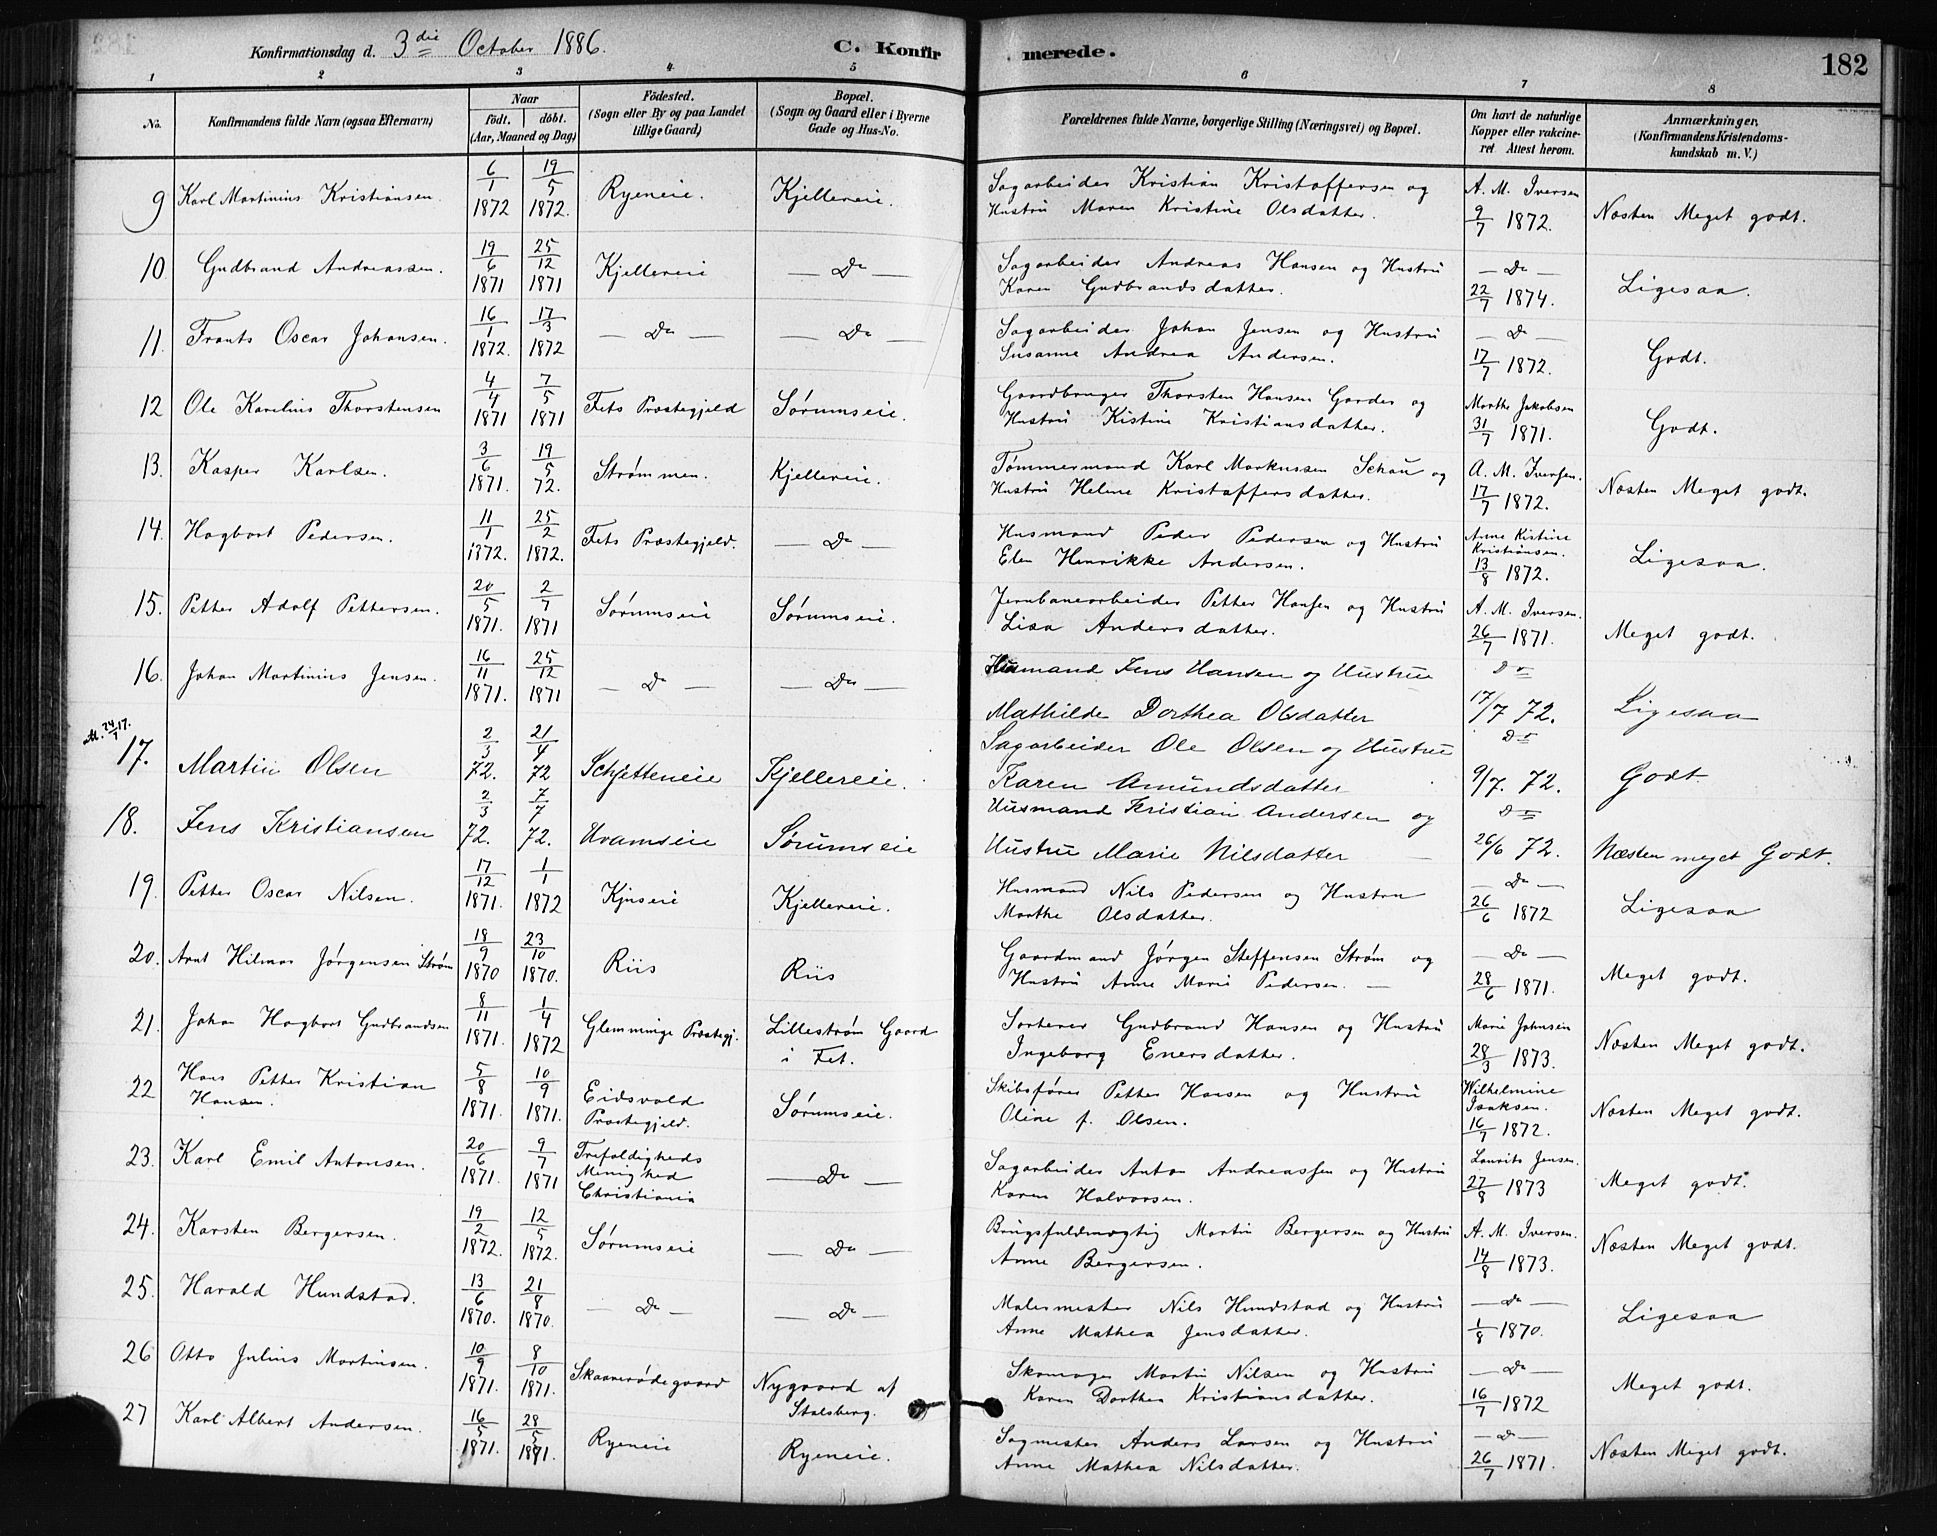 Konfirmationsdag d. 3die October 1886.
C. Konfirmerede.
182
1 2 3 4 5 6 7 8
No.
Konfirmandens fulde Navn (ogsaa Efternavn)
Naar
födt. döbt.
(Aar, Maaned og Dag)
Födested.
(Sogn eller By og paa Landet
tillige Gaard)
Bopæl.
(Sogn og Gaard eller i Byerne
Gade og Hus-No.
Forældrenes fulde Navne, borgerlige Stilling (Næringsvei) og Bopæl.
Om havt de naturlige
Kopper eller vakcine-
ret Attest herom.
Anmærkninger.
(Konfirmandens Kristendoms-
kundskab m. V.)
9 Karl Martinius Kristiansen. 6/1 1872 19/5 1872. Ryeneie. Kjellereie. Sagarbeider Kristian Kristoffersen og A. M. Iversen
Hustru Maren Kristine Olsdatter. 9/7 1872. Næsten Meget godt.
10 Gudbrand Andreassen. 19/6 1871 25/12 1871 Kjellereie — Do — Sagarbeider Andreas Hansen og Hustru — Do —
Karen Gudbrandsdatter. 22/7 1874. Ligesaa.
11. Frants Oscar Johansen. 16/1 1872. 17/3 1872 — Do — — Do — Sagarbeider Johan Jensen og Hustru — Do
Susanne Andrea Andersen. 17/7 1872. Godt.
12 Ole Karelius Thorstensen 4/4 1871 7/5 1871 Fets Præstegjeld Sørumseie. Gaardbruger Thorsten Hansen Garder og Marthe Jakobsen
Hustru Kistine Kristiansdatter. 31/7 1871. Godt.
13. Kasper Karlsen. 3/6 1871. 19/5 72. Strømmen. Kjellereie. Tømmermand Karl Markussen Schau og A. M. Iversen.
Hustru Helene Kristoffersdatter. 17/7 1872. Næsten Meget godt.
14. Hagbart Pedersen. 11/1 1872. 25/2 1872. Fets Præstegjeld. — Do — Husmand Peder Pedersen og Hustru Anne Kistine
Elen Henrikke Andersen. Kristiansen.
13/8 1872. Ligesaa.
15. Petter Adolf Pettersen. 20/5 1871. 2/7 1871 Sørumseie Sørumseie. Jernbanearbeider Petter Hansen og Hustru A. M. Iversen.
Lisa Andersdatter. 26/7 1871. Meget godt.
16. Johan Martinius Jensen. 16/11 1871. 25/12 1871 — Do — — Do — Husmand Jens Hansen og Hustrue Do
Mathilde Dorthea Olsdatter 17/7 72. Ligesaa
17. Martin Olsen 2/3 72. 21/4 72 Schjetteneie Kjellereie. Sagarbeider Ole Olsen og Hustrue Do
Karen Amundsdatter 9/7. 72. Godt
18. Jens Kristiansen 2/3 72. 7/7 72. Hvamseie Sørumseie Husmand Kristian Andersen og Do
Hustru Marie Nilsdatter 26/6 72. Næsten meget Godt.
19. Petter Oscar Nilsen. 17/12 1871. 1/1 1872 Kjuseie Kjellereie. Husmand Nils Pedersen og Hustru — Do —
Marthe Olsdatter. 26/6 1872 Ligesaa
20. Arnt Hilmar Jørgensen Strøm 18/9 1870 23/10 1870. Riis Riis Gaardmand Jørgen Steffensen Strøm og — Do —
Hustru Anne Marie Pedersen. — 28/6 1871. Meget godt.
21. Johan Hagbart Gudbrandsen 8/11 1871. 1/4 1872 Glemminge Præstegj. Lillestrøm Gaard Sorterer Gudbrand Hansen og Hustru Marie Johnsen
i Fet. Ingeborg Enersdatter. 28/3 1873. Næsten Meget godt.
22 Hans Petter Kristian 5/8 1871. 10/9 1871. Eidsvold Sørumseie. Skibsfører Petter Hansen og Hustru Wilhelmine
Hansen. Præstegjeld. Oline f. Olsen. Isaksen.
16/7 1872. Næsten Meget godt.
23. Karl Emil Antonsen. 20/6 1871. 9/7 1871 Trefoldigheds — Do — Sagarbeider Anton Andreassen og Hustru Laurits Jensen.
Menighed Karen Halvorsen. 27/8 1873 Meget godt.
Christiania
24. Karsten Bergersen. 19/2 1872. 12/5 1872. Sørumseie — Do — Brugsfuldmægtig Martin Bergersen og Hustru A. M. Iversen.
Anne Bergersen. 14/8 1873. Næsten Meget godt.
25. Harald Hundstad. 13/6 1870. 21/8 1870. — Do — — Do — Malermester Nils Hundstad og Hustru — Do —
Anne Mathea Jensdatter. 1/8 1870. Ligesaa
26 Otto Julius Martinsen. 10/9 1871. 8/10 1871. Skaarerødegaard Nygaard af Skomager Martin Nilsen og Hustru — Do —
Stalsberg. Karen Dorthea Kristiansdatter. 16/7 1872 Meget godt.
27 Karl Albert Andersen. 16/5 1871. 28/5 1871. Ryeneie Ryeneie. Sagmester Anders Larsen og Hustru — Do —
Anne Mathea Nilsdatter. 26/7 1871. Næsten Meget godt.